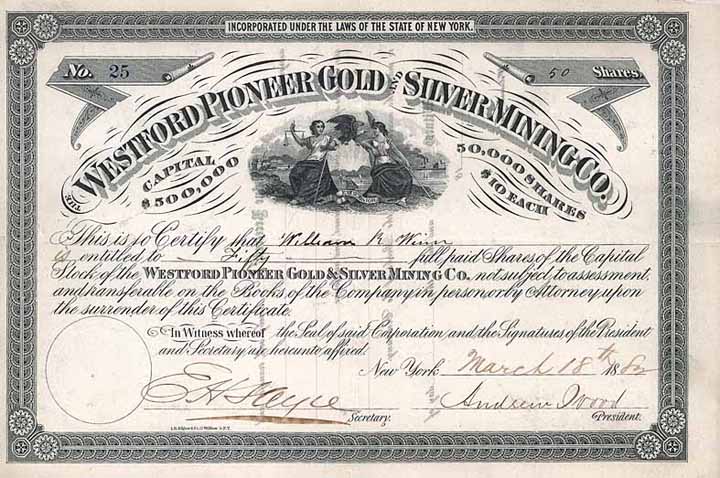 INCORPORATED UNDER THE LAWS OF THE STATE OF NEW YORK.
No. 25
50 Shares
THE WESTFORD PIONEER GOLD AND SILVER MINING CO.
CAPITAL
$500,000
50,000 SHARES
$10 EACH
This is to Certify that William R. Winn
is entitled to Fifty full paid Shares of the Capital
Stock of the WESTFORD PIONEER GOLD & SILVER MINING CO. not subject to assessment,
and transferable on the Books of the Company in person, or by Attorney upon
the surrender of this Certificate.
In Witness whereof the Seal of said Corporation, and the Signatures of the President
and Secretary are hereunto affixed.
New York March 18th 1882
Secretary.
Andrew Wood
President.